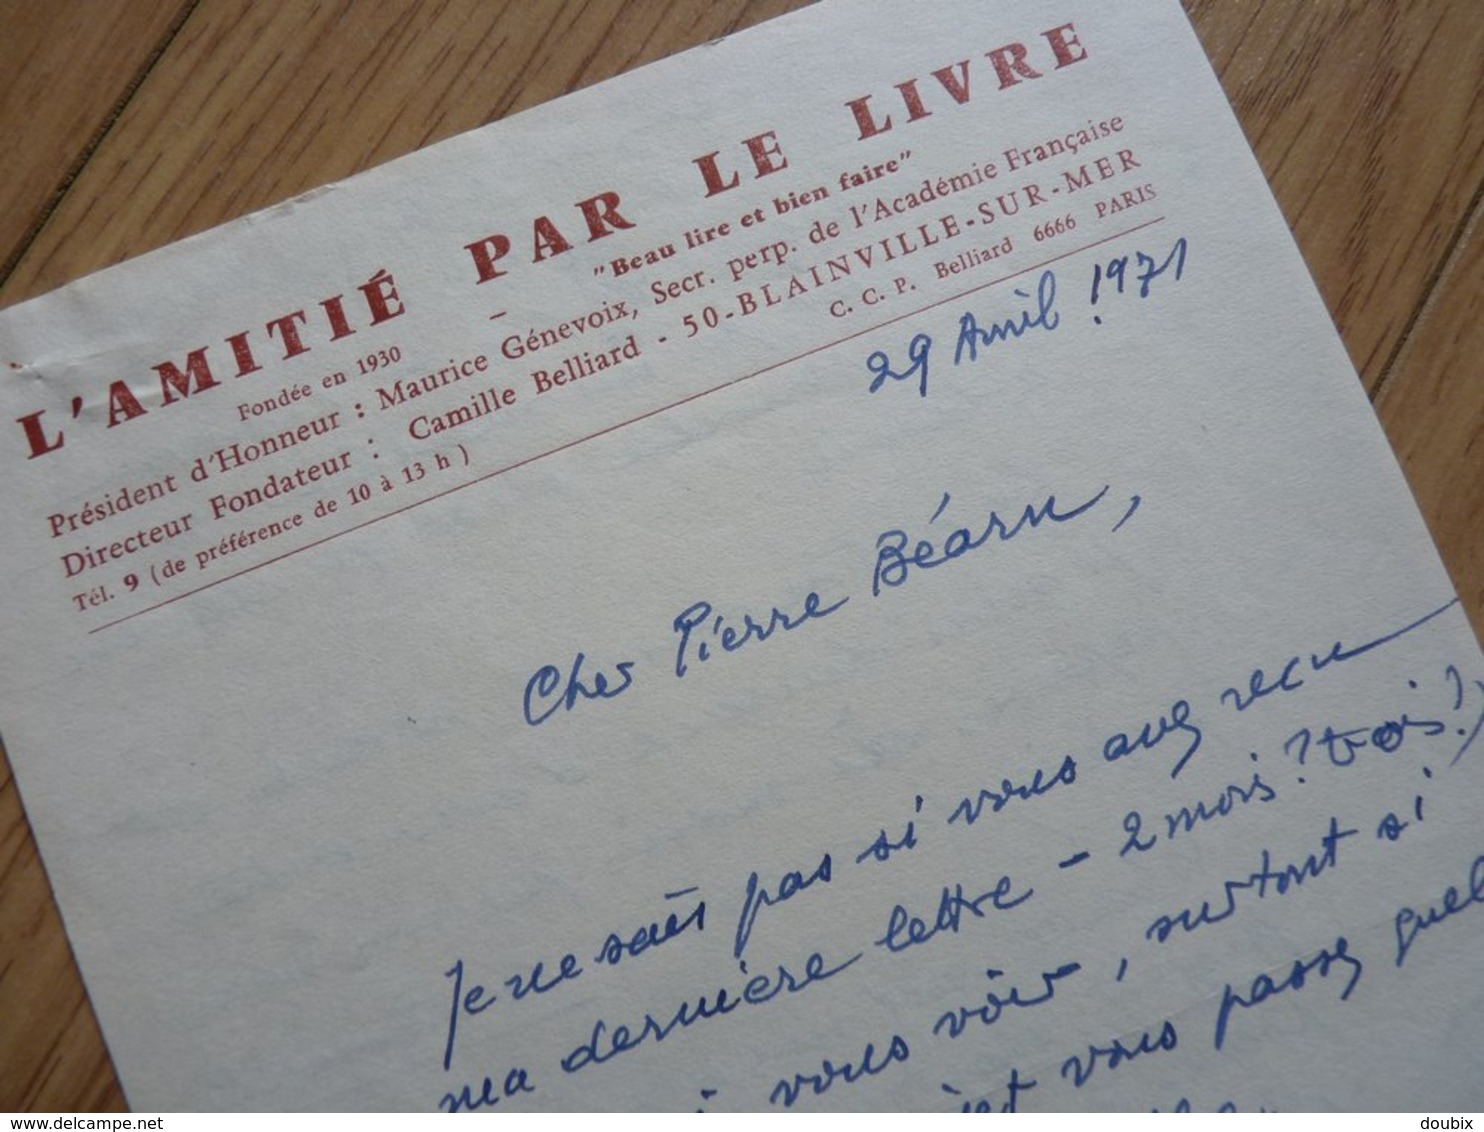 L'AMITIÉ PAR LE LIVRE
Fondée en 1930 – "Beau lire et bien faire"
Président d'Honneur : Maurice Génevoix, Secr. perp. de l'Académie Française
Directeur Fondateur : Camille Belliard - 50-BLAINVILLE-SUR-MER
Tél. 9 (de préférence de 10 à 13 h) C. C. P. Belliard 6666 PARIS
29 Avril 1971
Cher Pierre Béarn,
Je ne sais pas si vous avez recu
ma dernière lettre - 2 mois? trois?)
vous voir, surtout si
vous passez quel
delcampe.net
doubix